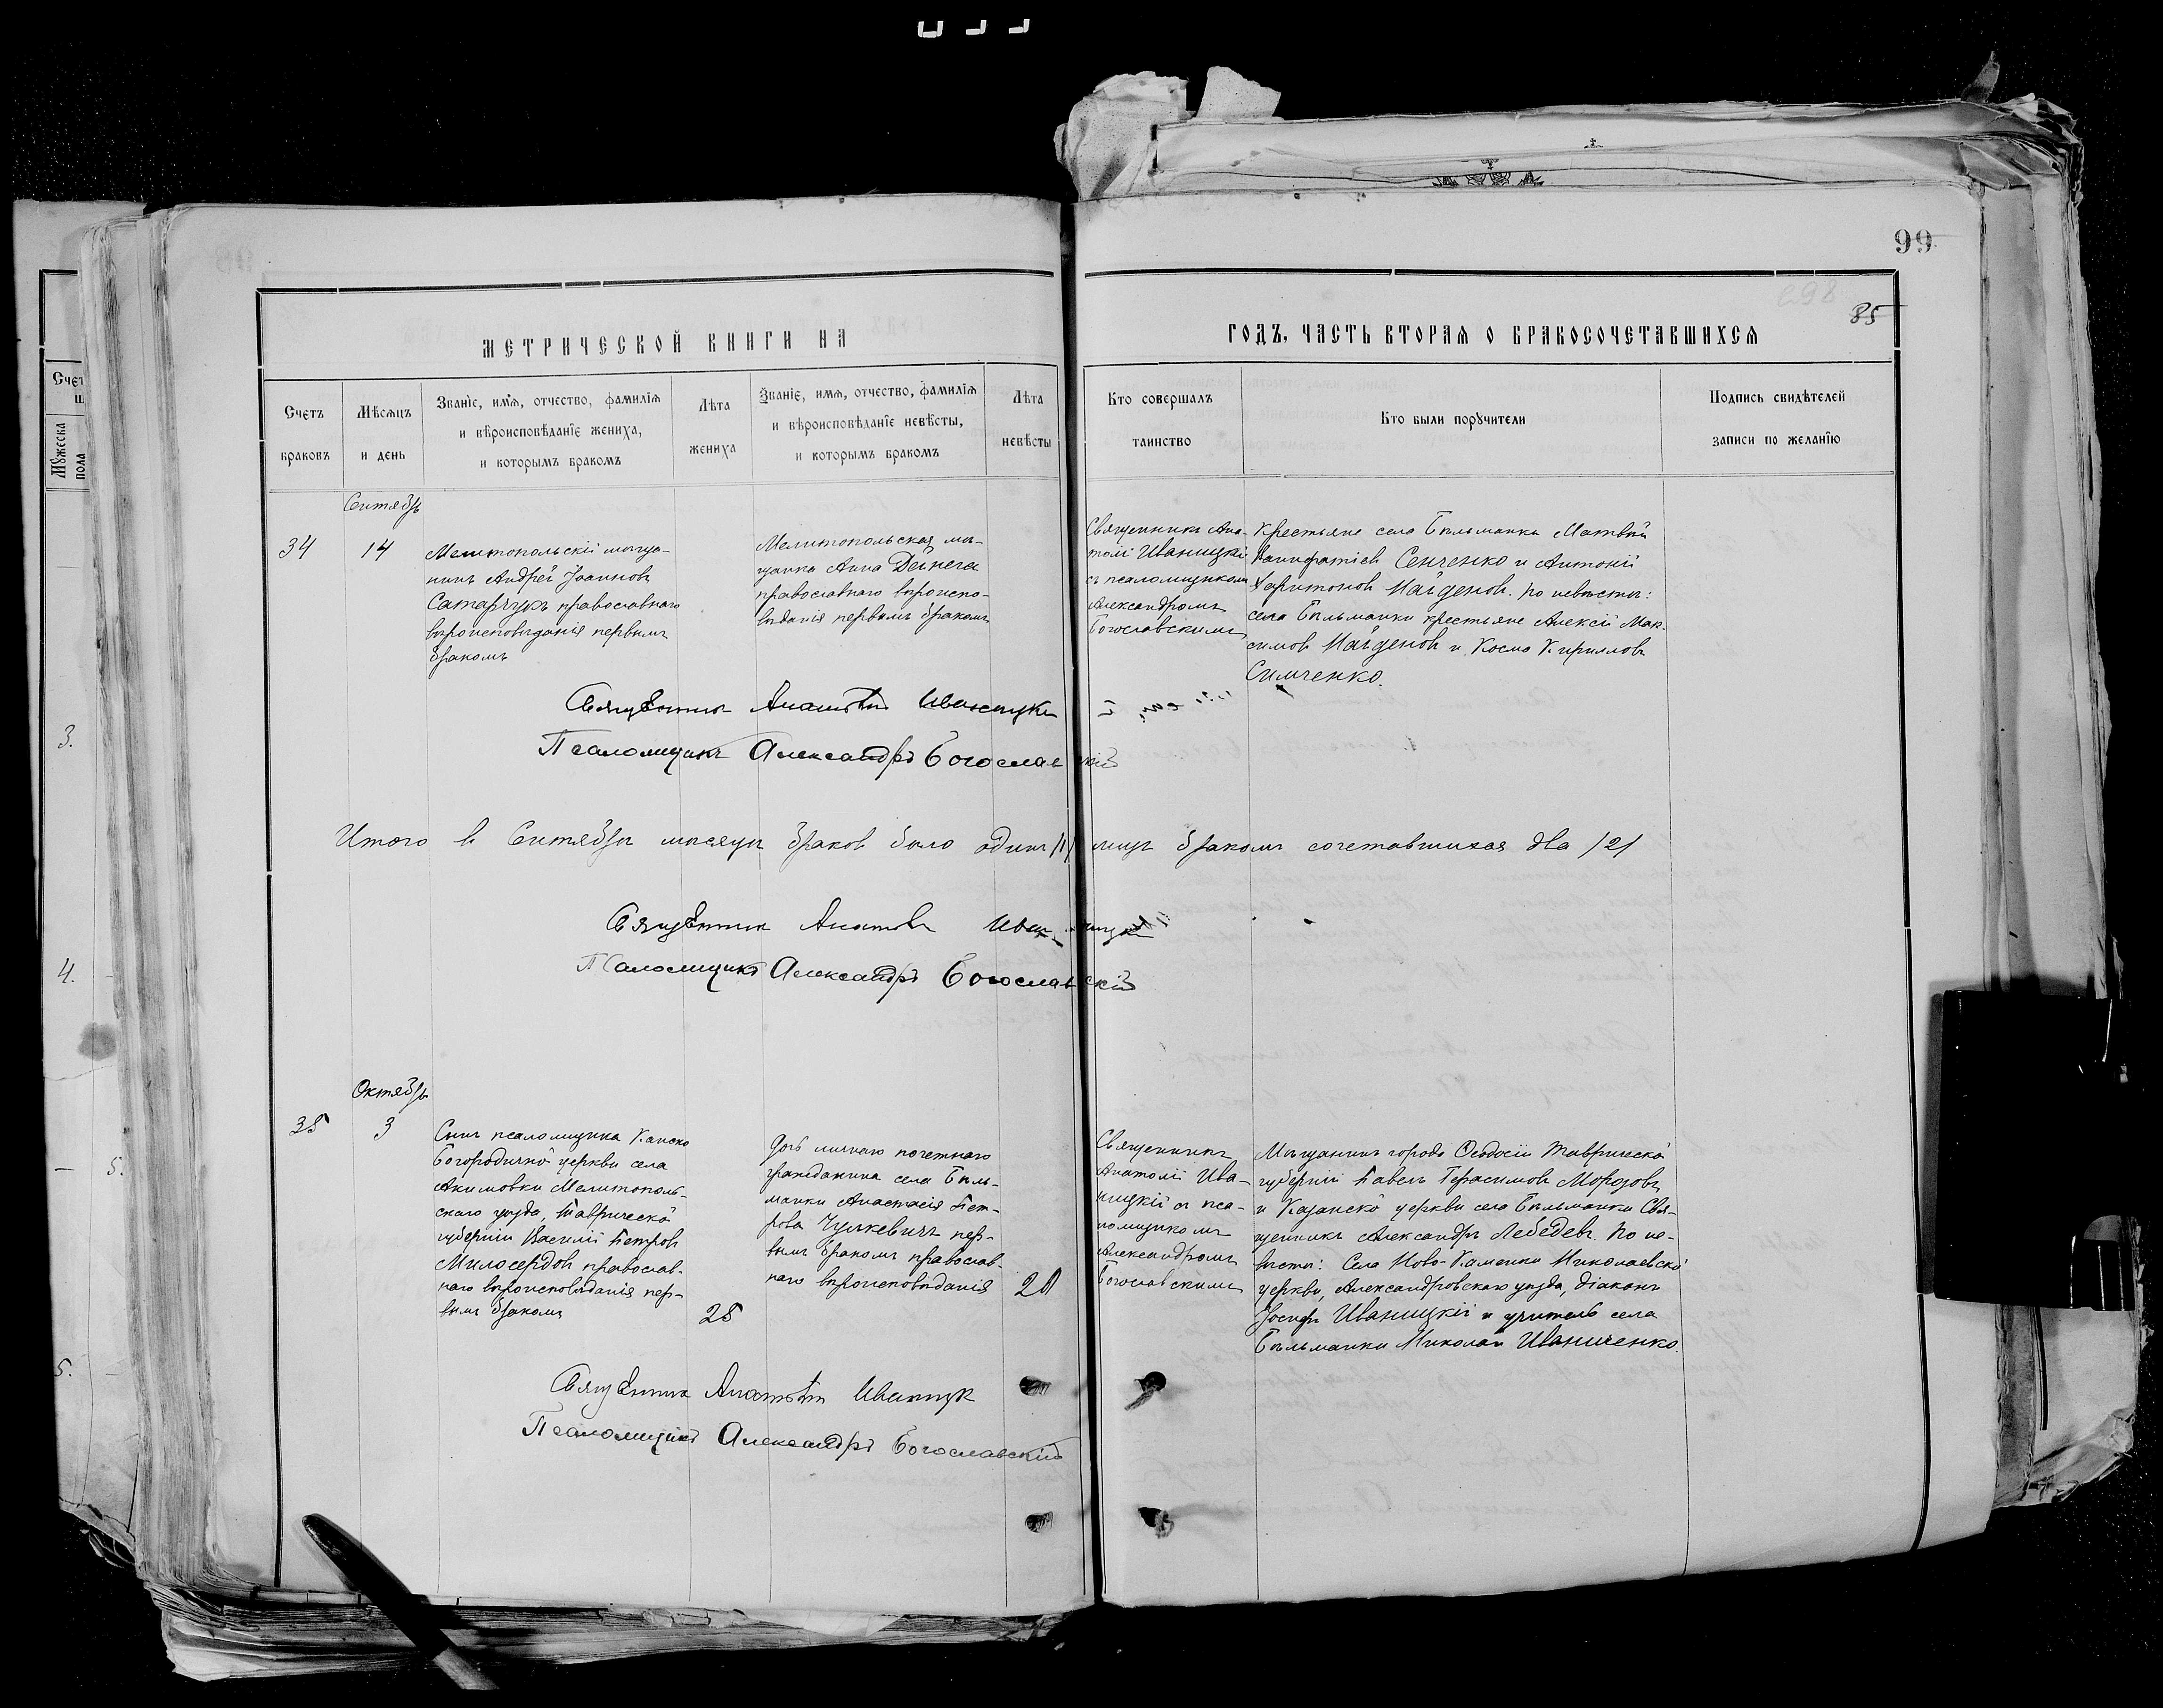 99
85
МЕТРИЧЕСКОЙ КНИГИ НА
ГОДЪ, ЧАСТЬ ВТОРАЯ О БРАКОСОЧЕТАВШИХСЯ
Счетъ
браковъ
Мѣсяцъ
и день
Званіе, имя, отчество, фамилія
и вѣроисповѣданіе жениха,
и которымъ бракомъ
Лѣта
жениха
Званіе, имя, отчество, фамилія
и вѣроисповѣданіе невѣсты,
и которымъ бракомъ
Лѣта
невѣсты
Кто совершалъ
таинство
Кто были поручители
Подпись свидѣтелей
записи по желанію
Сентябрь
34
14
Мелитопольскій мѣща-
нинъ Андрей Іоанновъ
Сатарчукъ православнаго
вѣроисповѣданія первымъ
бракомъ
Мелитопольская мѣ-
щанка Анна Дейнега
православнаго вѣроиспо-
вѣданія первымъ бракомъ
Священникъ Ана-
толій Иваницкій
съ псаломщикомъ
Александромъ
Богославскимъ
Крестьяне села Бѣльманки Матвѣй
Сенченко и Антоній
Харитоновъ Найденовъ. По невѣстѣ:
села Бѣльманки крестьяне Алексій Мак-
симовъ Найденовъ и Косма Кирилловъ
Симченко.
Священникъ Анатолій Иваницкій
Псаломщикъ Александръ Богославскій
Итого въ Сентябрѣ мѣсяцѣ браковъ было одинъ /1/ лицъ бракомъ сочетавшихся два /2/
Священникъ Анатолій Иваницкій
Псаломщикъ Александръ Богославскій
Октябрь
35
3
Сынъ псаломщика
Богородичной церкви села
Акимовки Мелитополь-
скаго уѣзда, Таврической
губерніи Василій Петровъ
Милосердовъ православ-
наго вѣроисповѣданія пер-
вымъ бракомъ
25
Дочь личнаго почетнаго
гражданина села Бѣль-
манки Анастасія Пет-
рова Чулкевичъ пер-
вымъ бракомъ православ-
наго вѣроисповѣданія
Священникъ
Анатолій Ива-
ницкій съ пса-
ломщикомъ
Александромъ
Богославскимъ
Мѣщанинъ города Ѳеодосіи Таврической
губерніи Павелъ Герасимовъ Морозовъ
и Казанской церкви села Бѣльманки Свя-
щенникъ Александръ Лебедевъ. По не-
вѣстѣ: Села Ново-Каменки Николаевской
церкви, Александровскаго уѣзда, діаконъ
Іосифъ Иваницкій и учитель села
Бѣльманки Николай Иваниченко.
Священникъ Анатолій Иваницкій
Псаломщикъ Александръ Богославскій